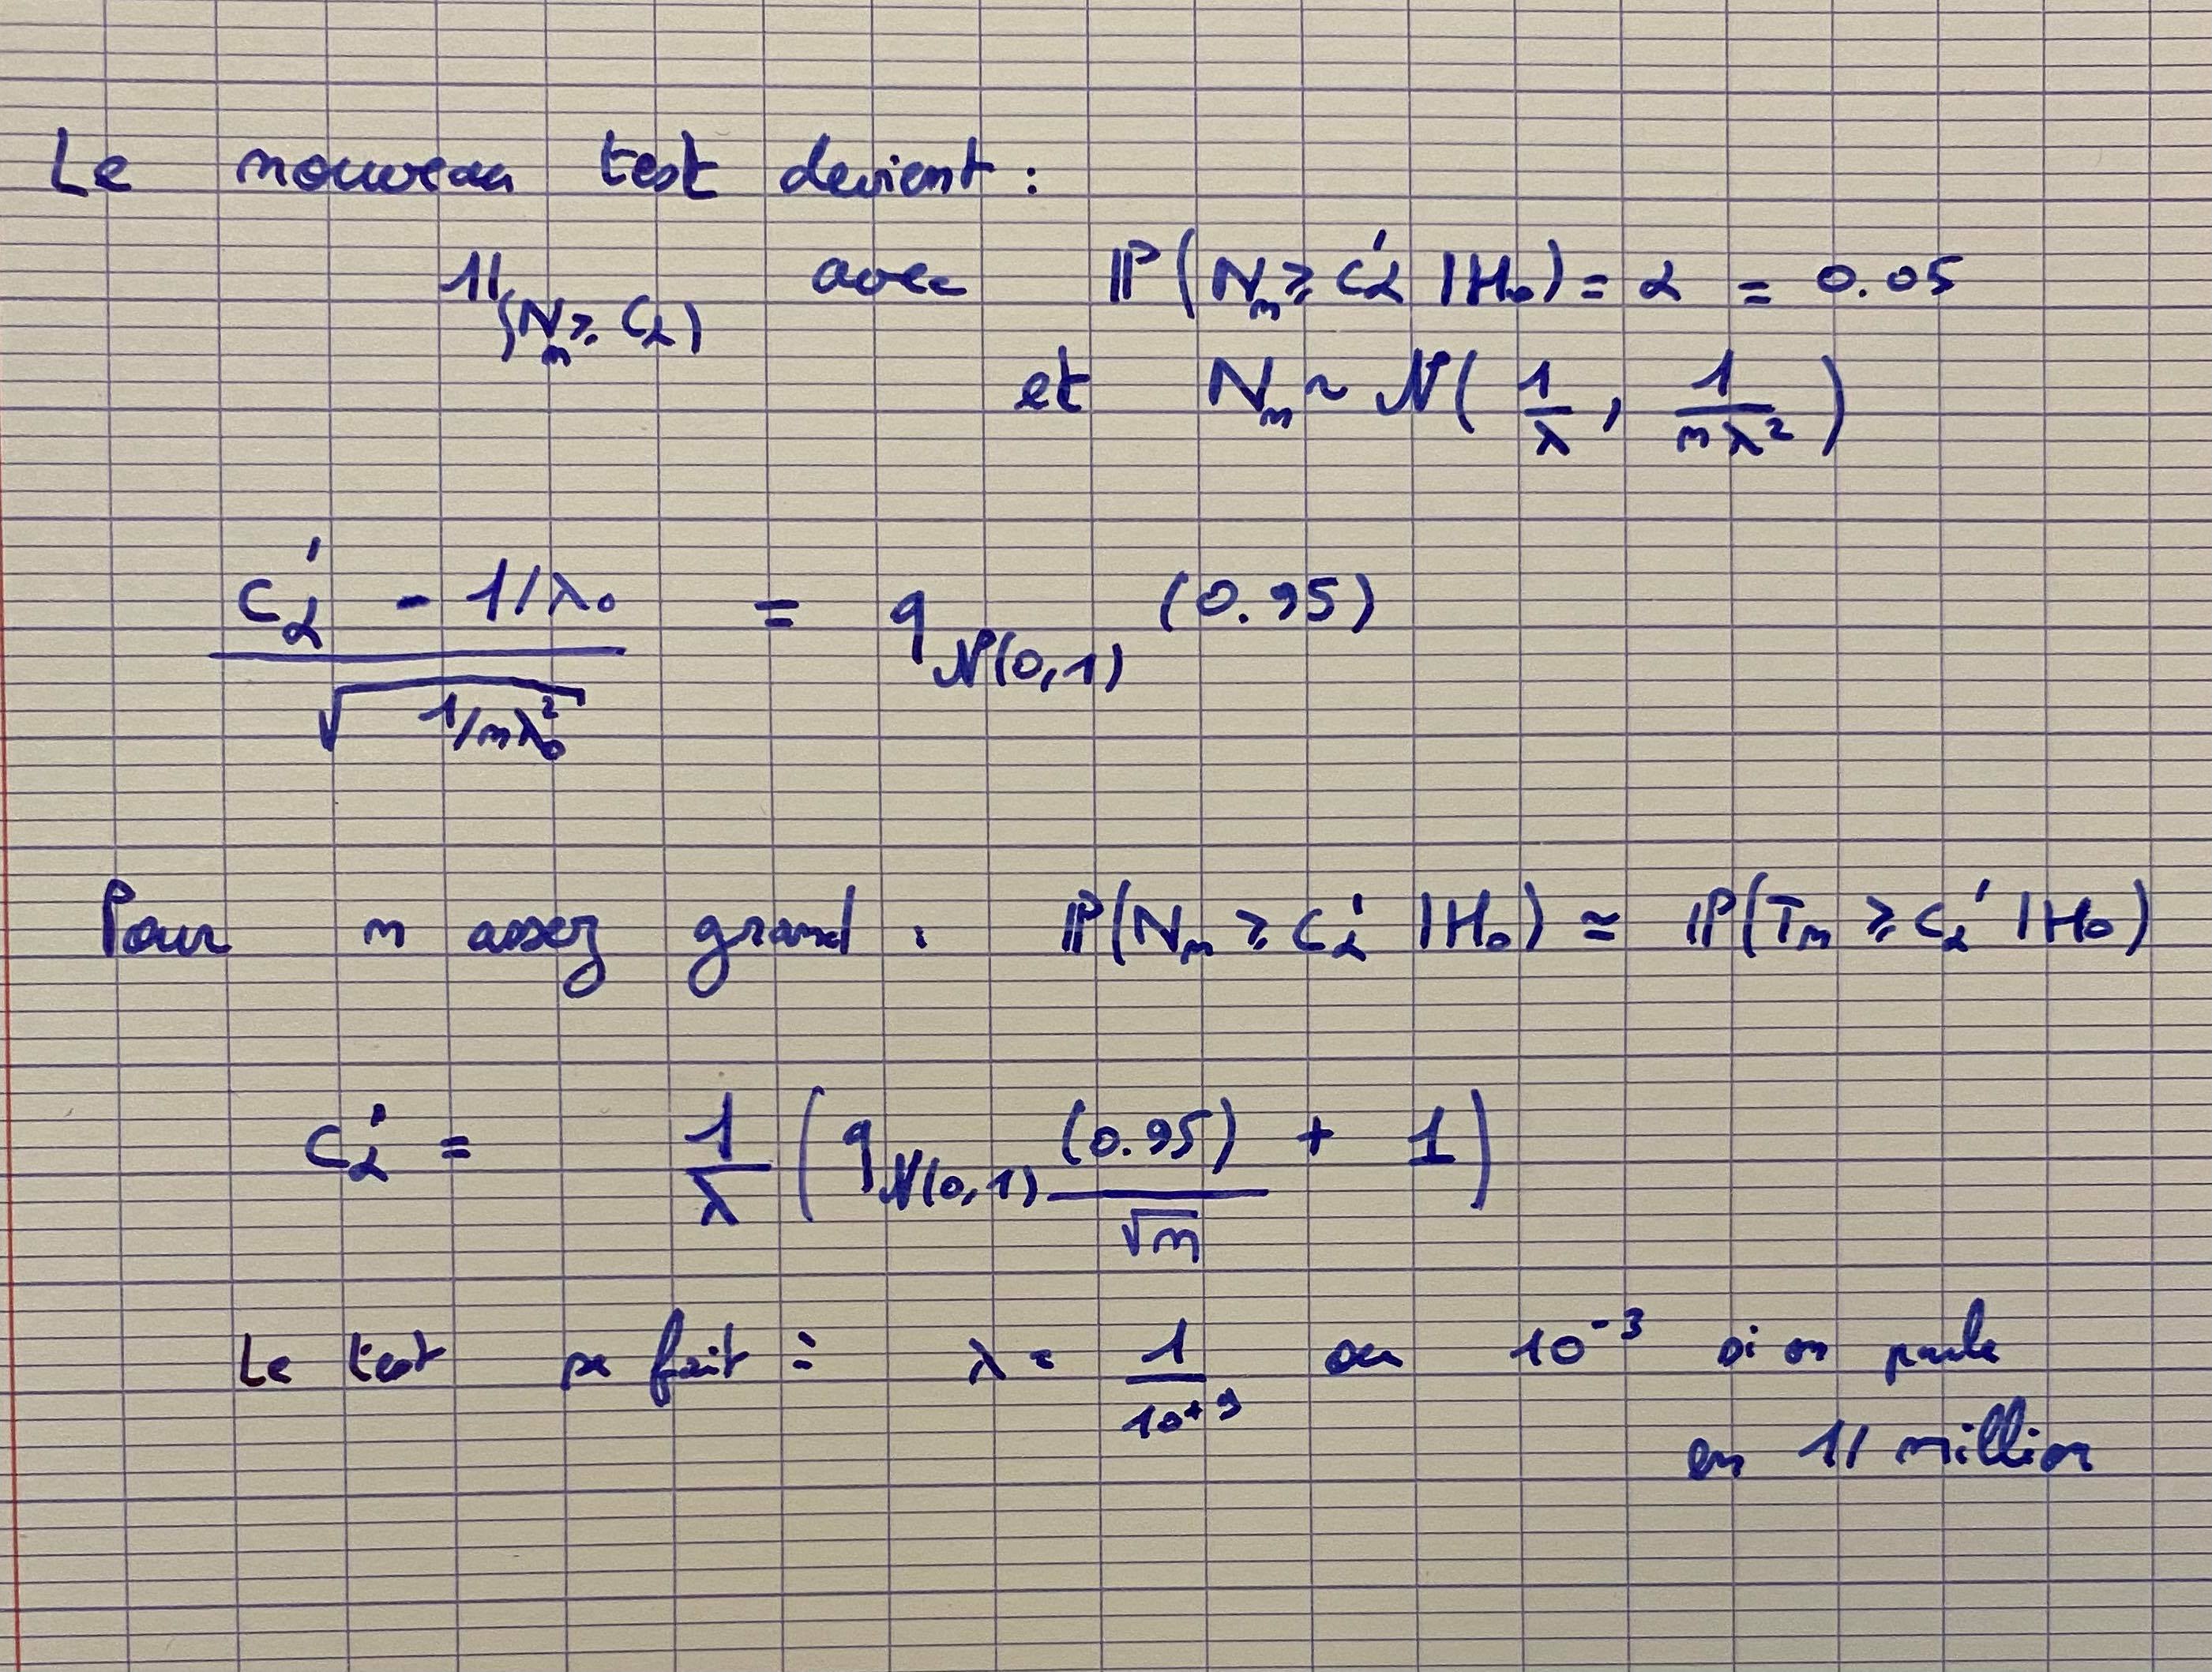 Le nouveau test devient :
𝟙{N_n ≥ C_α} avec ℙ(N_n ≥ C'_α | H_0) = α = 0.05
et N_n ~ 𝒩(1/λ, 1/(nλ²))
(C'_α - 1/λ_0) / √(1/nλ_0²) = q_𝒩(0,1) (0.95)
Pour n assez grand : ℙ(N_n ≥ C'_α | H_0) ≃ ℙ(T_n ≥ C'_α | H_0)
C'_α = 1/λ (q_𝒩(0,1) (0.95)/√n + 1)
Le test se fait : λ = 1/10^{+9} ou 10^{-3} si on parle
en 1/ million